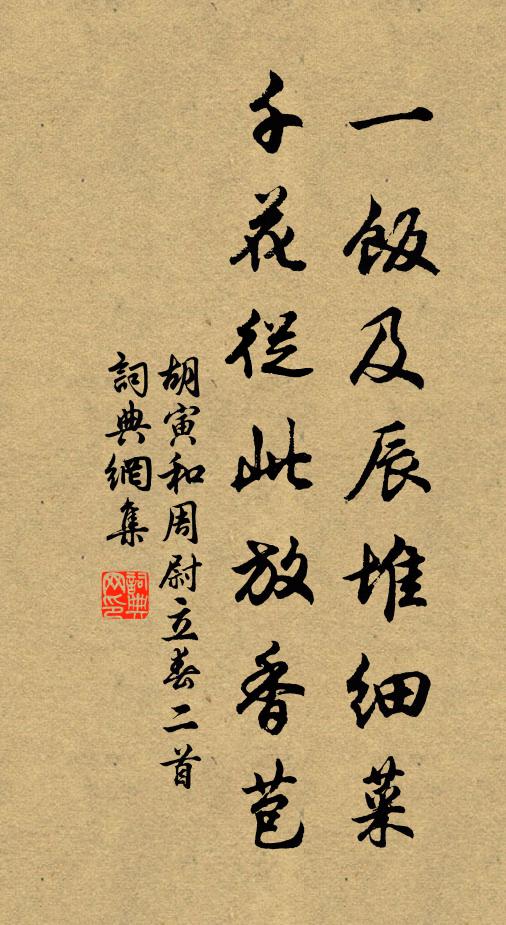 一飯及辰堆細菜
千花從此放香苞
胡寅和周尉立春二首
詞典網集
詞典网印